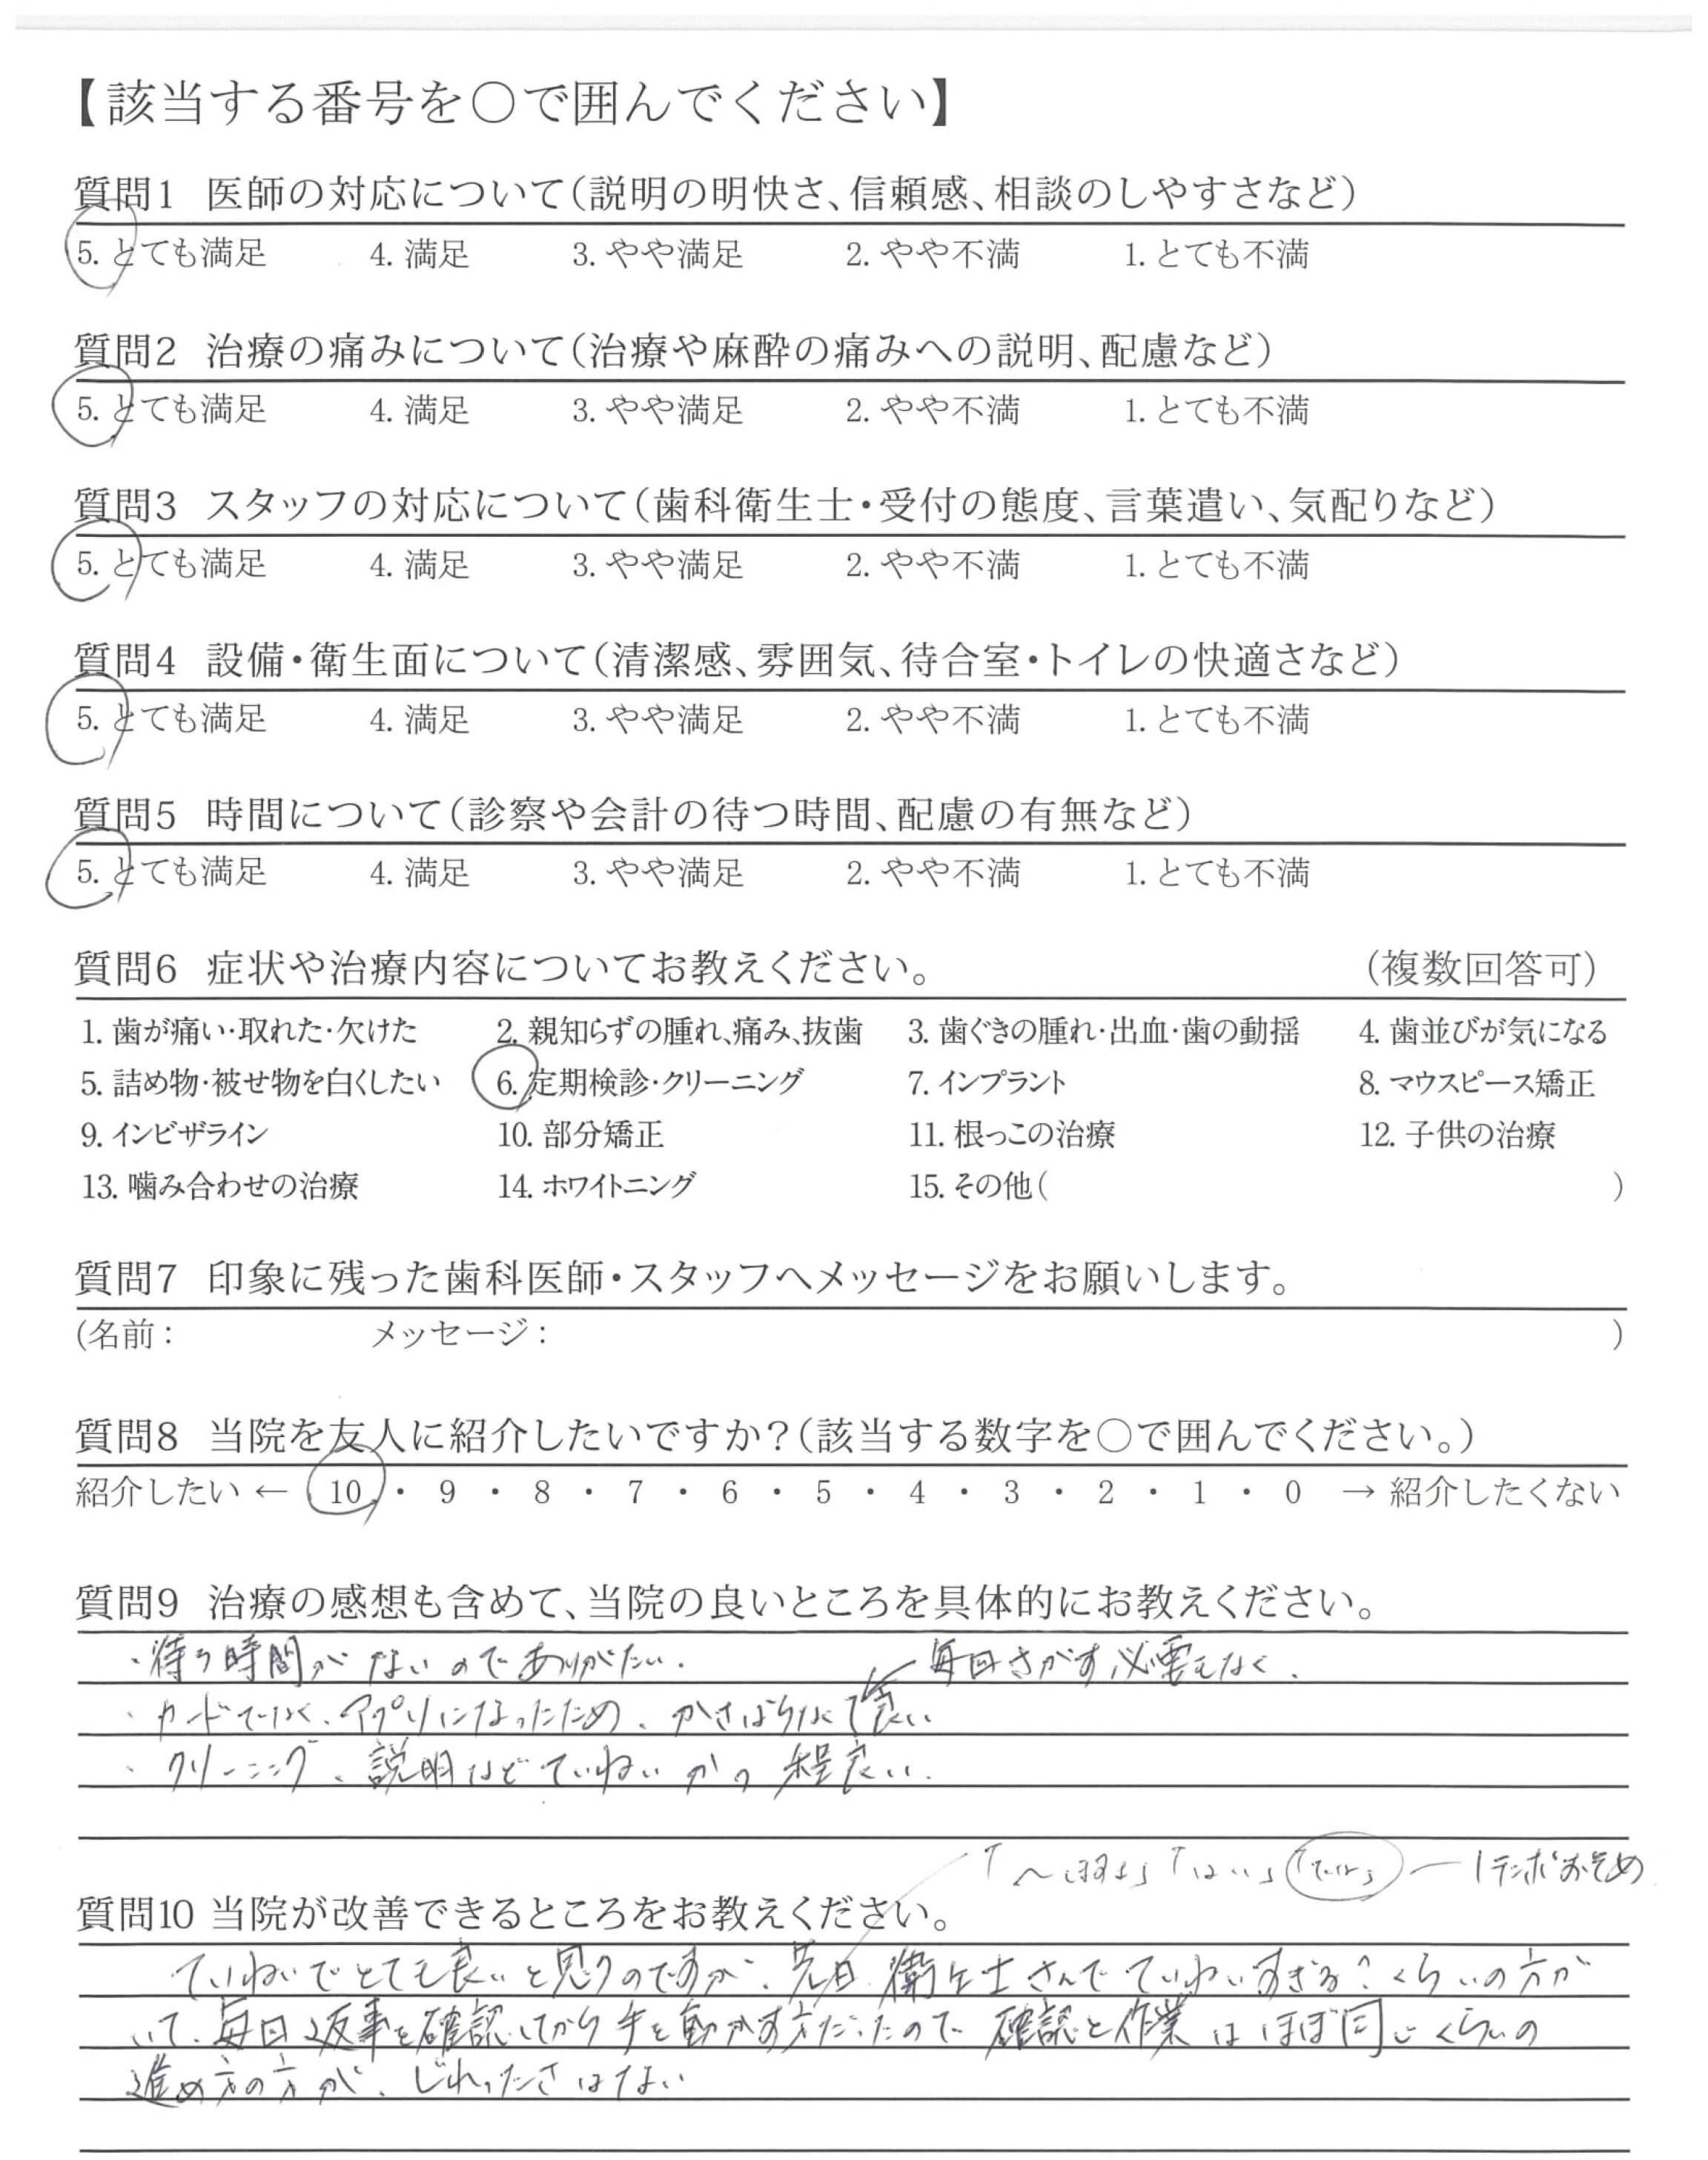 【該当する番号を〇で囲んでください】
質問1 医師の対応について（説明の明快さ、信頼感、相談のしやすさなど）
5. とても満足 4. 満足 3. やや満足 2. やや不満 1. とても不満
質問2 治療の痛みについて（治療や麻酔の痛みへの説明、配慮など）
5. とても満足 4. 満足 3. やや満足 2. やや不満 1. とても不満
質問3 スタッフの対応について（歯科衛生士・受付の態度、言葉遣い、気配りなど）
5. とても満足 4. 満足 3. やや満足 2. やや不満 1. とても不満
質問4 設備・衛生面について（清潔感、雰囲気、待合室・トイレの快適さなど）
5. とても満足 4. 満足 3. やや満足 2. やや不満 1. とても不満
質問5 時間について（診察や会計の待つ時間、配慮の有無など）
5. とても満足 4. 満足 3. やや満足 2. やや不満 1. とても不満
質問6 症状や治療内容についてお教えください。 （複数回答可）
1. 歯が痛い・取れた・欠けた 2. 親知らずの腫れ、痛み、抜歯 3. 歯ぐきの腫れ・出血・歯の動揺 4. 歯並びが気になる
5. 詰め物・被せ物を白くしたい 6. 定期検診・クリーニング 7. インプラント 8. マウスピース矯正
9. インビザライン 10. 部分矯正 11. 根っこの治療 12. 子供の治療
13. 噛み合わせの治療 14. ホワイトニング 15. その他（ ）
質問7 印象に残った歯科医師・スタッフへメッセージをお願いします。
（名前： メッセージ： ）
質問8 当院を友人に紹介したいですか？（該当する数字を〇で囲んでください。）
紹介したい ← 10 ・ 9 ・ 8 ・ 7 ・ 6 ・ 5 ・ 4 ・ 3 ・ 2 ・ 1 ・ 0 → 紹介したくない
質問9 治療の感想も含めて、当院の良いところを具体的にお教えください。
・待つ時間がないのでありがたい。
毎回さがす必要もなく、
・カードでなく、アプリになったため、かさばらなくて良い
・クリーニング、説明などていねいかつ程良い。
「〜しますよ」「はい」 ー 1テンポおそめ
質問10 当院が改善できるところをお教えください。
ていねいでとても良いと思うのですが、先日、衛生士さんでていねいすぎる？くらいの方が
いて、毎回返事を確認してから手を動かす方だったので 確認と作業はほぼ同じくらいの
進め方の方が、じれったさはない